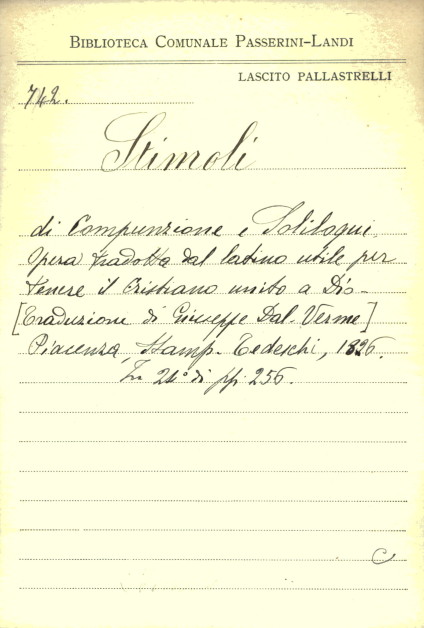 BIBLIOTECA COMUNALE PASSERINI-LANDI
LASCITO PALLASTRELLI
742.
Stimoli
di Compunzione e Soliloqui
Opera tradotta dal latino utile per
tenere il Cristiano unito a Dio-
[Traduzione di Giuseppe Dal-Verme]
Piacenza, Stamp. Tedeschi, 1826.
In 24° di pp. 256.
C